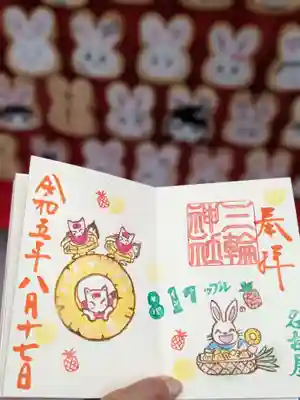 奉拝
三輪
神社
名古屋
817ップル
令和五年八月十七日